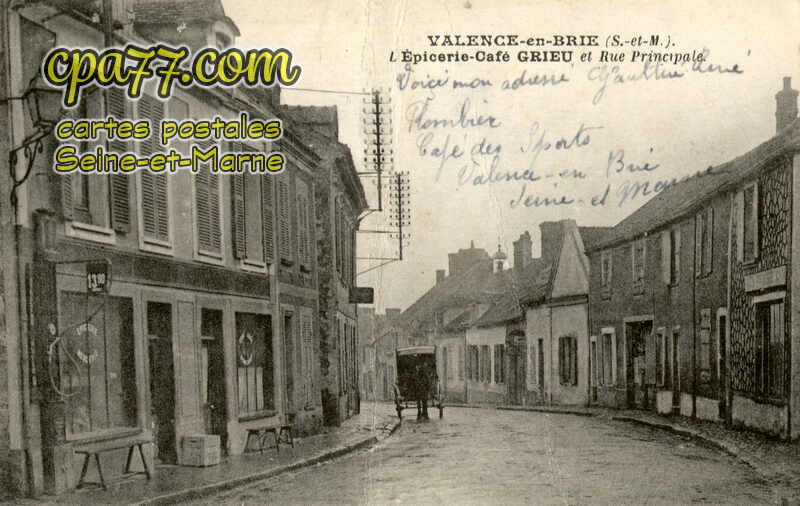 VALENCE-en-BRIE (S.-et-M.).
1. Épicerie-Café GRIEU et Rue Principale.
cpa77.com
cartes postales
Seine-et-Marne
Voici mon adresse Gaultier René
Plombier
Café des Sports
Valence-en Brie
Seine-et Marne